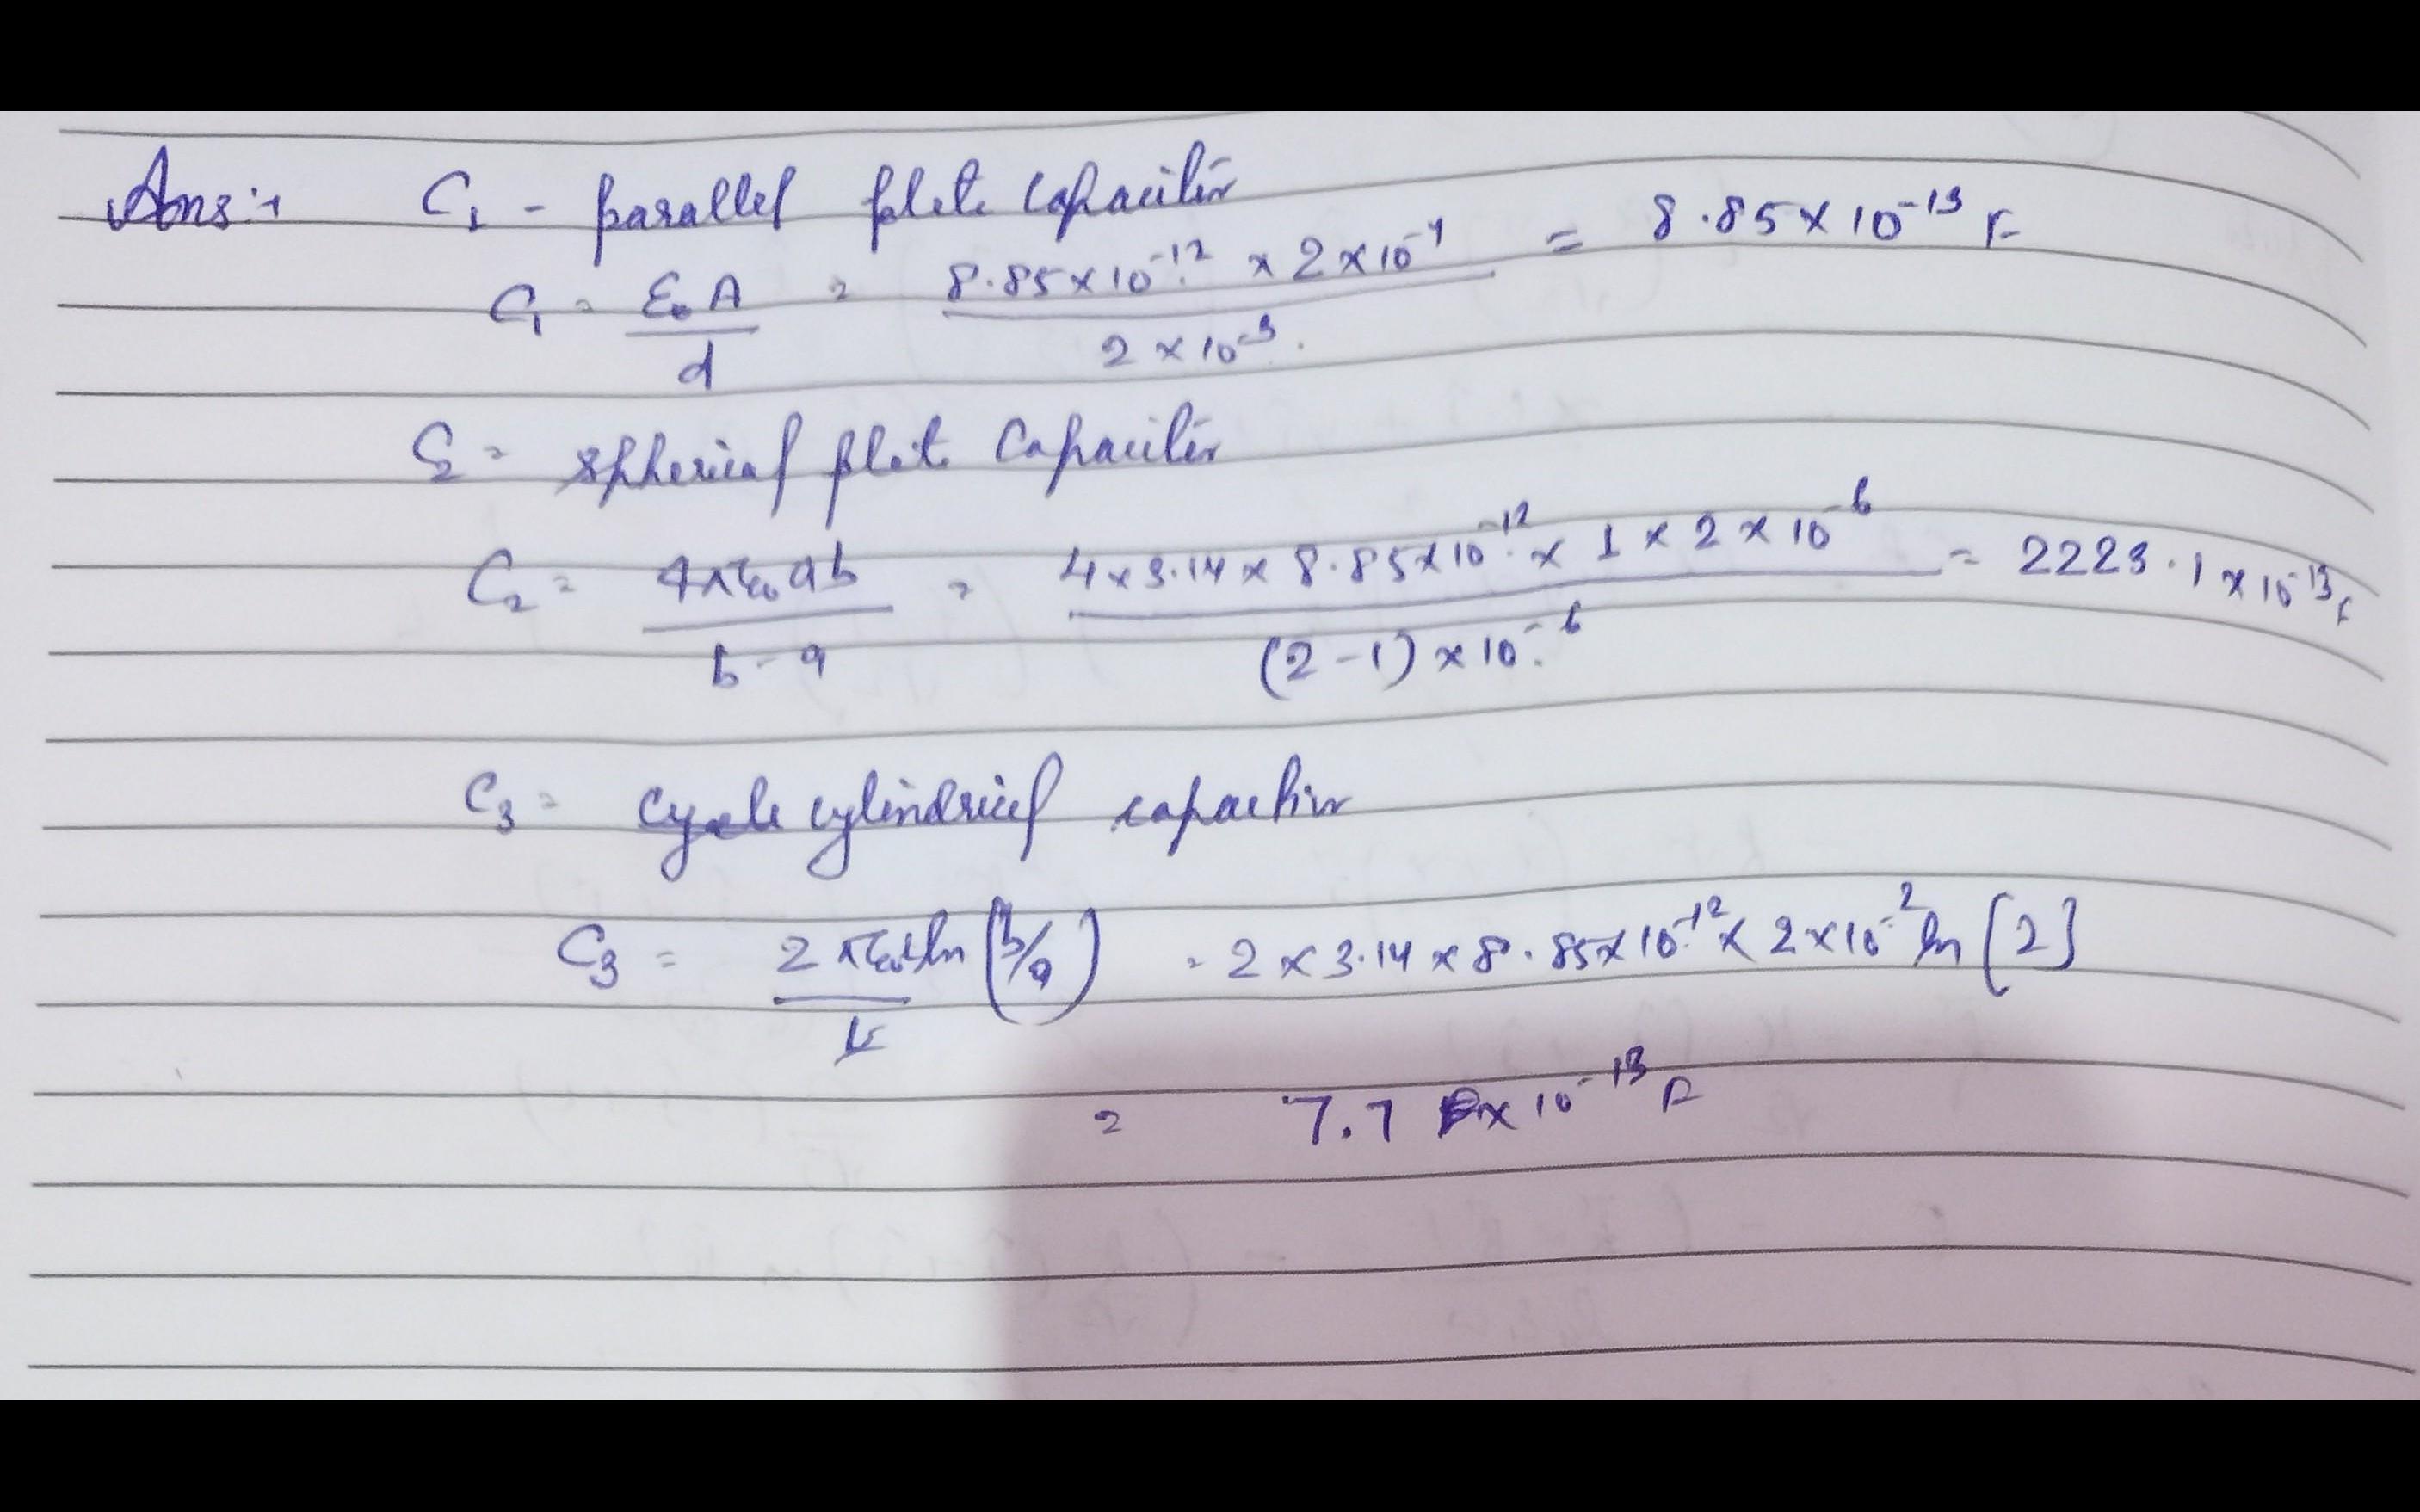 Ans:→ C₁ - parallel plate capacitor
C₁ = ε₀A / d = 8.85×10⁻¹² × 2×10⁻⁴ / 2×10⁻³ = 8.85×10⁻¹³ F
C₂ = spherical plate capacitor
C₂ = 4πε₀ab / b-a = 4×3.14×8.85×10⁻¹² × 1×2×10⁻⁶ / (2-1)×10⁻⁶ = 2223.1×10⁻¹³ F
C₃ = cylindrical capacitor
C₃ = 2πε₀L ln (b/a) = 2×3.14×8.85×10⁻¹² × 2×10⁻² ln [2]
= 7.7 × 10⁻¹³ F